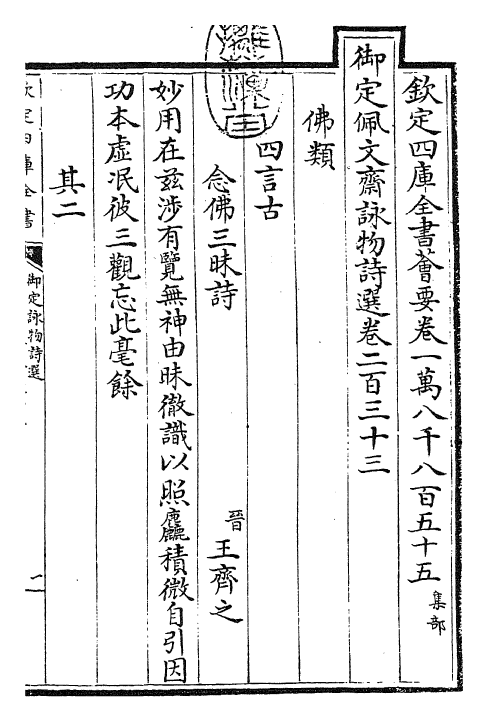 欽定四庫全書薈要卷一萬八千八百五十五 集部
御定佩文齋詠物詩選卷二百三十三
佛類
四言古
念佛三昧詩 晉 王齊之
妙用在兹涉有覽無神由昧徹識以照麤積微自引因
功本虛泯彼三觀忘此毫餘
其二
欽定四庫全書
御定詠物詩選